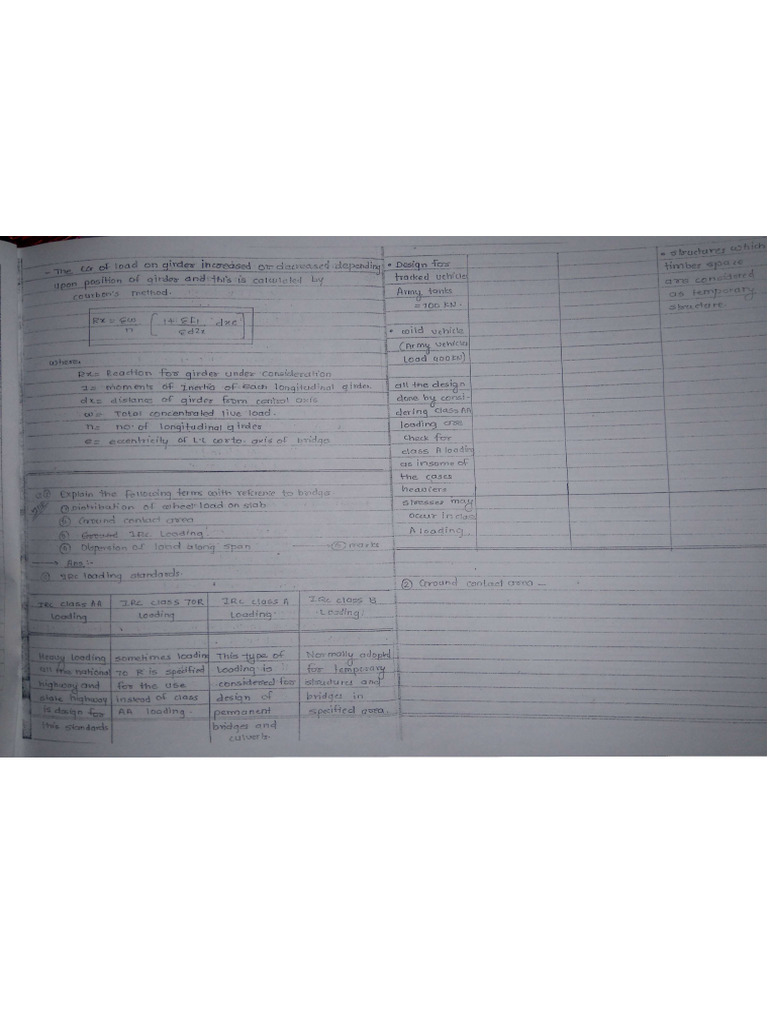 - The CG of load on girder increased or decreased depending
upon position of girder and this is calculated by
courbon's method.
Rx = Σw / n [ 1+ ΣI / Σd2x dxe ]
where,
Rx= Reaction for girder under consideration
I= moments of Inertia of each longitudinal girder.
dx= distance of girder from central axis
w= Total concentrated live load.
n= no. of longitudinal girder
e= eccentricity of L.L w.r.to. axis of bridge
Explain the following terms with reference to bridge
Distribution of wheel load on slab
Ground contact area
Ground IRC Loading
Dispersion of load along span → marks
→ Ans :-
IRC loading standards.
IRC class AA IRC class 70R IRC class A IRC class B
Loading Loading Loading Loading.
Heavy loading sometimes loading This type of Normally adopted
all the national 70 R is specified Loading is for temporary
highway and for the use considered for structures and
state highway instead of class design of bridges in
is design for AA loading. permanent specified area.
this standards bridges and
culverts.
• Design for
tracked vehicle
Army tanks
= 700 KN.
• wild vehicle
(Army vehicles
Load 400KN)
all the design
done by consi-
dering class AA
loading are
check for
class A loading
as in some of
the cases
heaviers
stresses may
occur in class
A loading.
• structures which
timber space
are considered
as temporary
structure.
② Ground contact area –